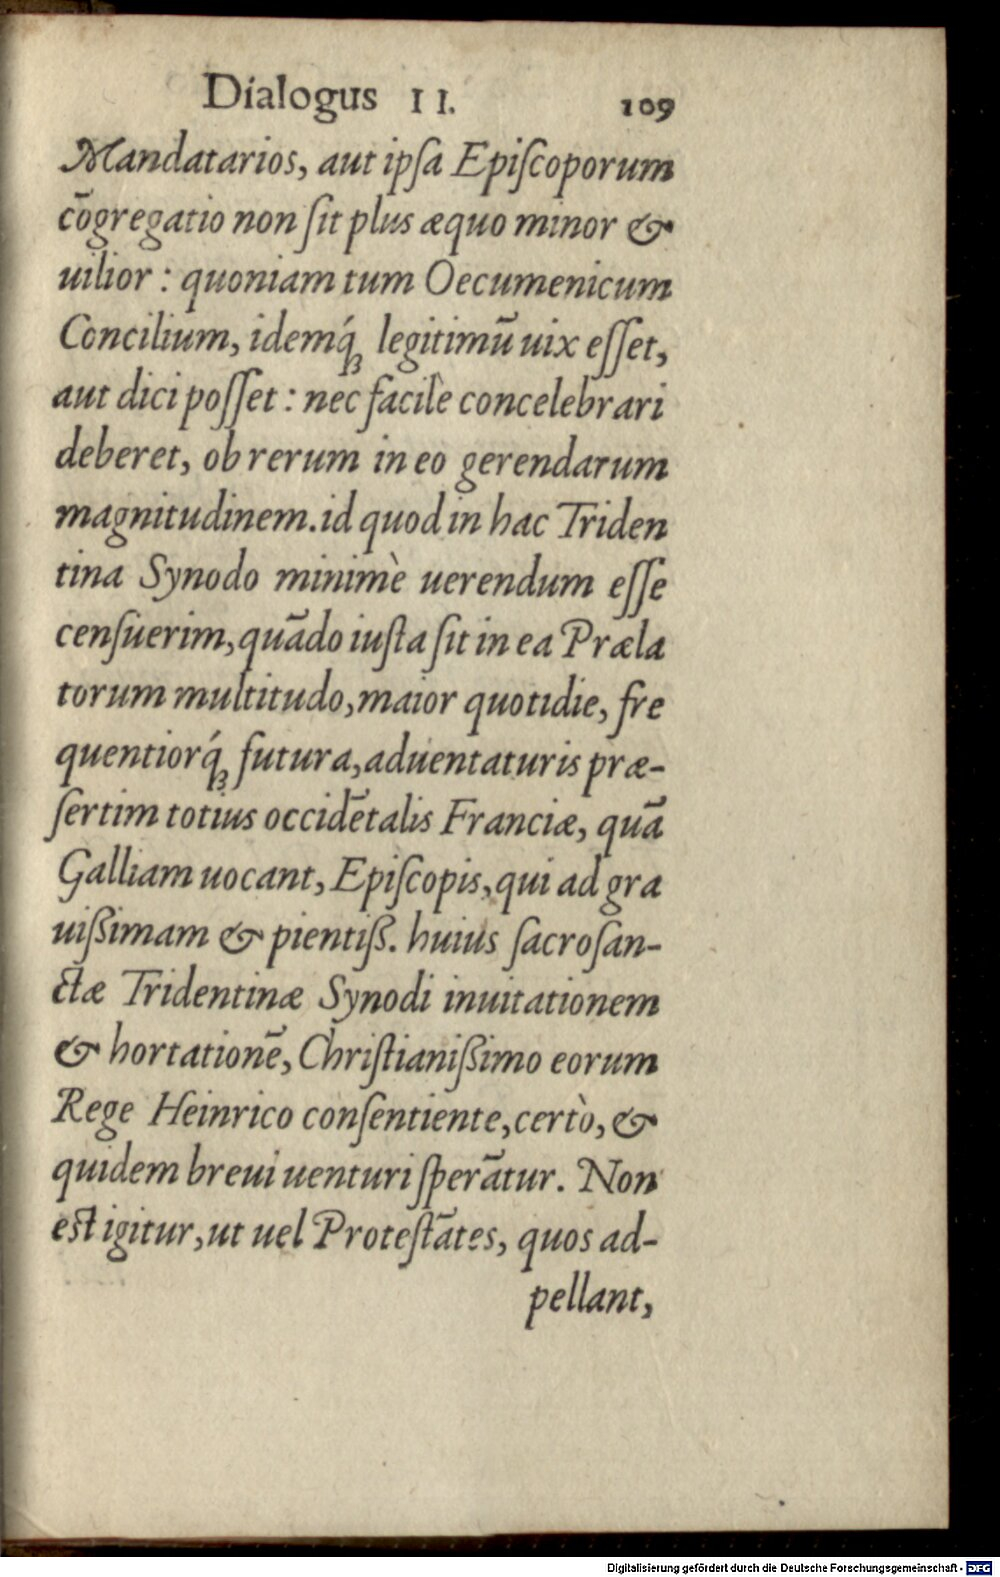 Dialogus II. 109
Mandatarios, aut ipſa Epiſcoporum
cōgregatio non ſit plus æquo minor &
uilior: quoniam tum Oecumenicum
Concilium, idemq́ꝫ legitimū uix eſſet,
aut dici poſſet: nec facilè concelebrari
deberet, ob rerum in eo gerendarum
magnitudinem. id quod in hac Triden
tina Synodo minimè uerendum eſſe
cenſuerim, quādo iuſta ſit in ea Præla
torum multitudo, maior quotidie, fre
quentiorq́ꝫ futura, aduentaturis præ-
ſertim totius occidētalis Franciæ, quā
Galliam uocant, Epiſcopis, qui ad gra
uißimam & pientiß. huius ſacroſan-
ctæ Tridentinæ Synodi inuitationem
& hortationē, Chriſtianißimo eorum
Rege Heinrico conſentiente, certò, &
quidem breui uenturi ſperātur. Non
eſt igitur, ut uel Proteſtātes, quos ad-
pellant,
Digitalisierung gefördert durch die Deutsche Forschungsgemeinschaft - DFG